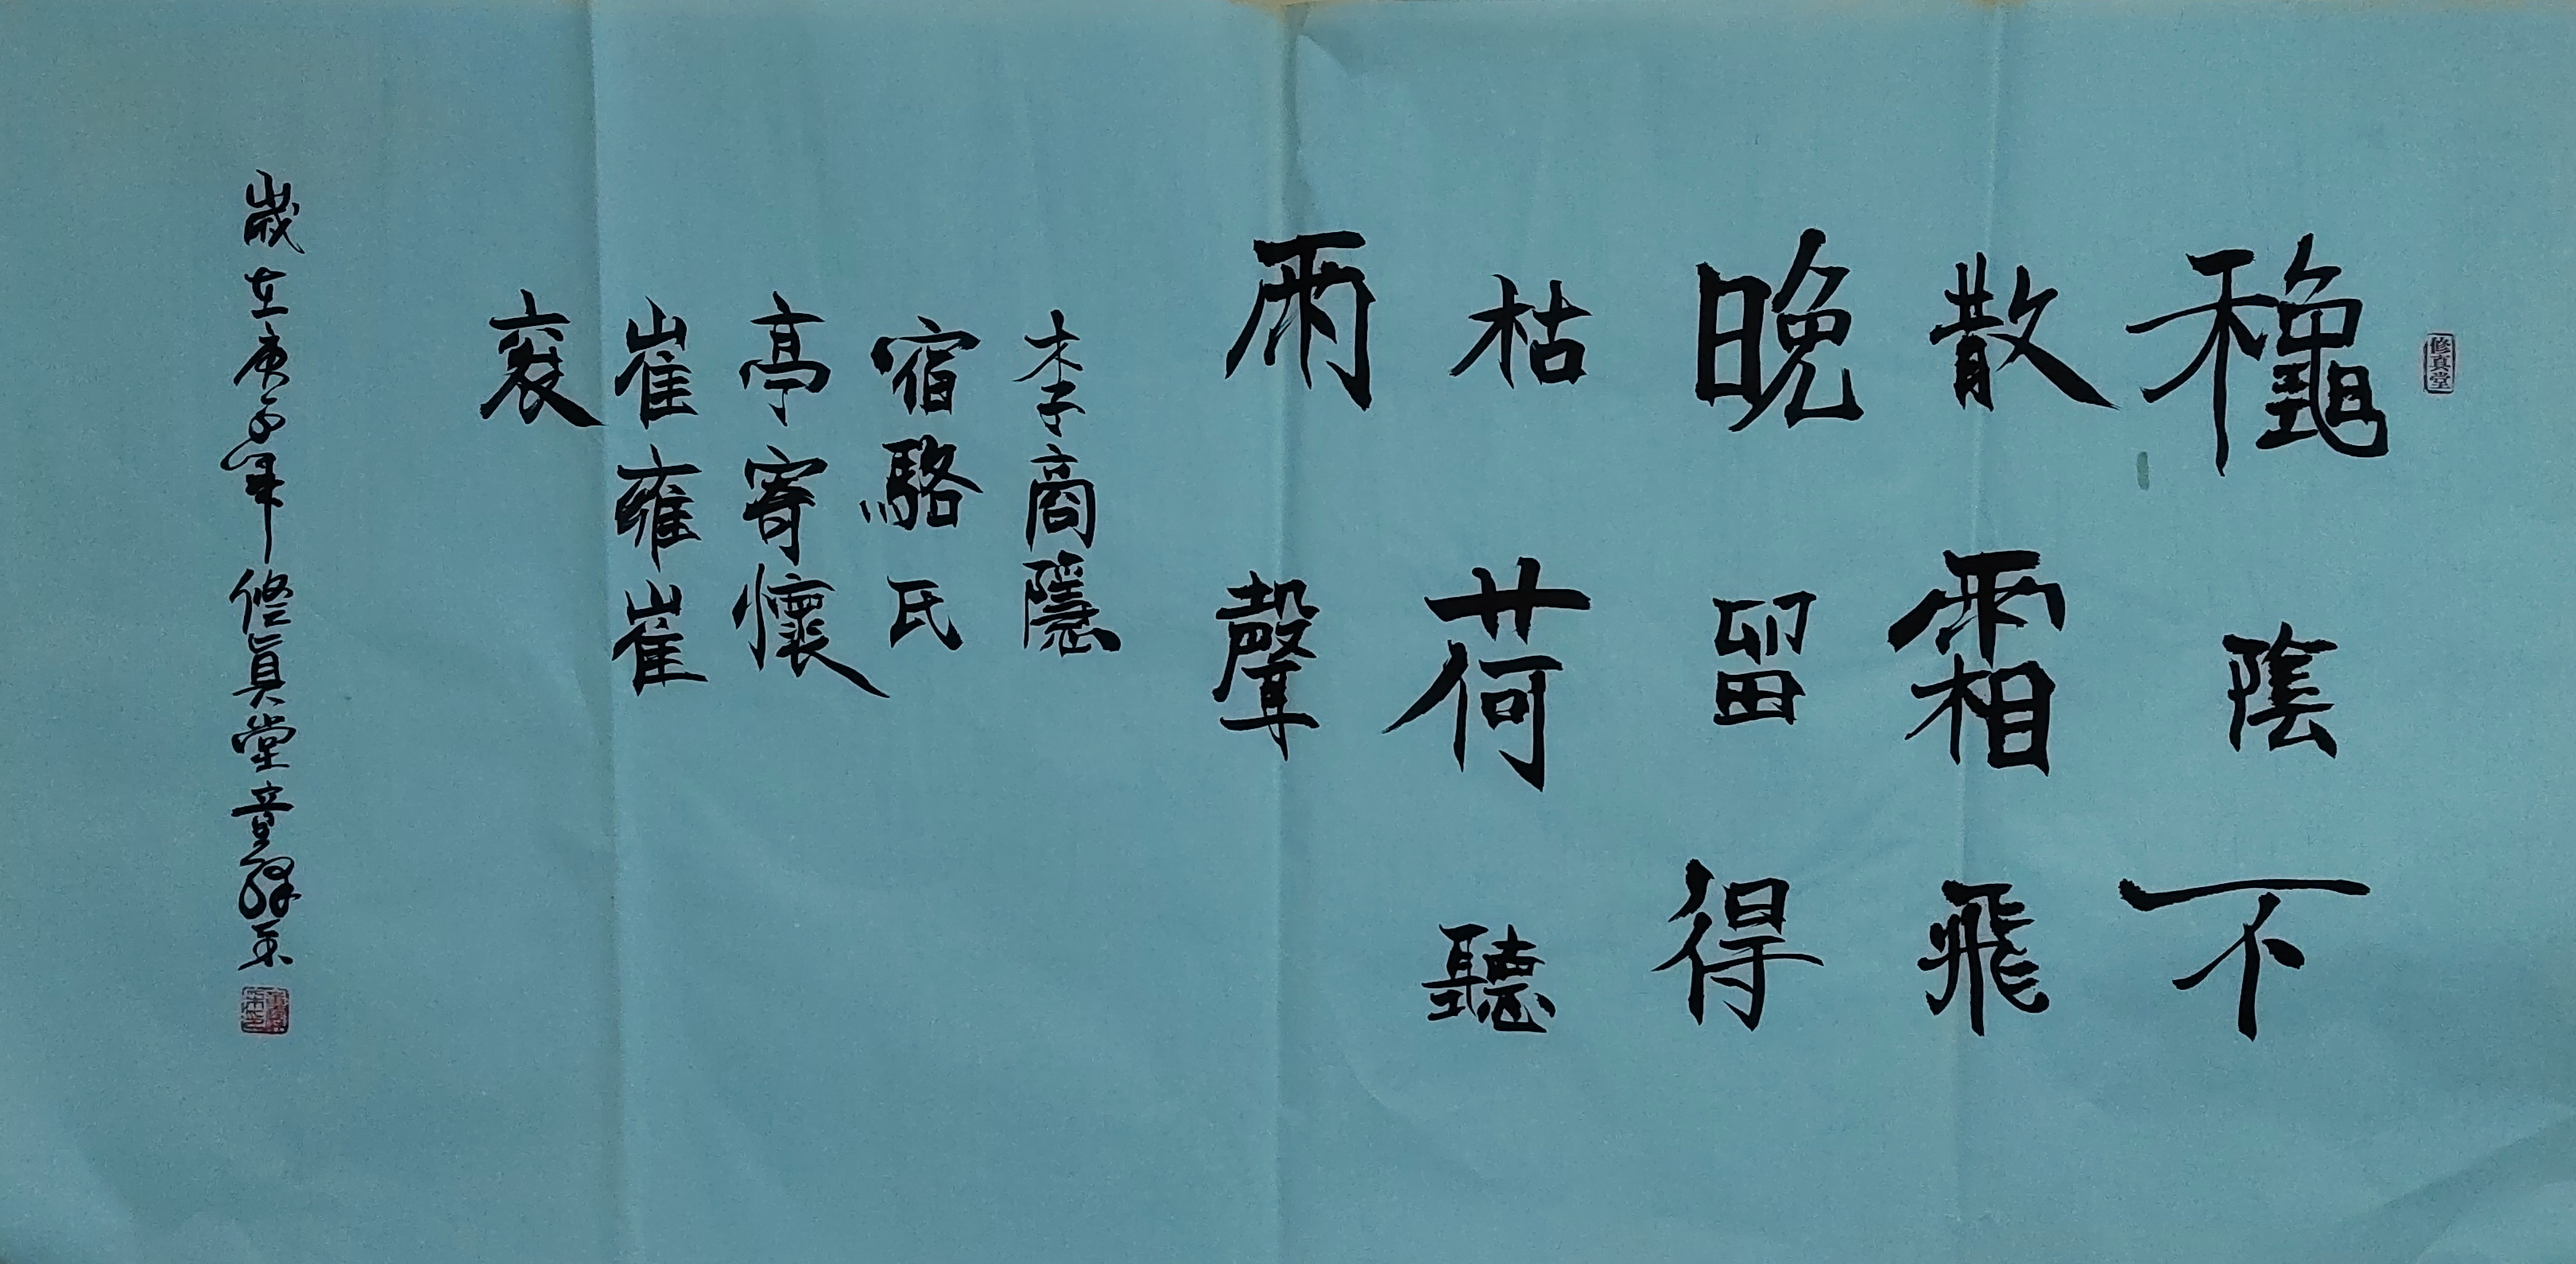 修真堂
龝陰不
散霜飛
晚留得
枯荷聽
雨聲
李商隱
宿駱氏
亭寄懷
崔雍崔
袞
歲在庚子年修真堂童